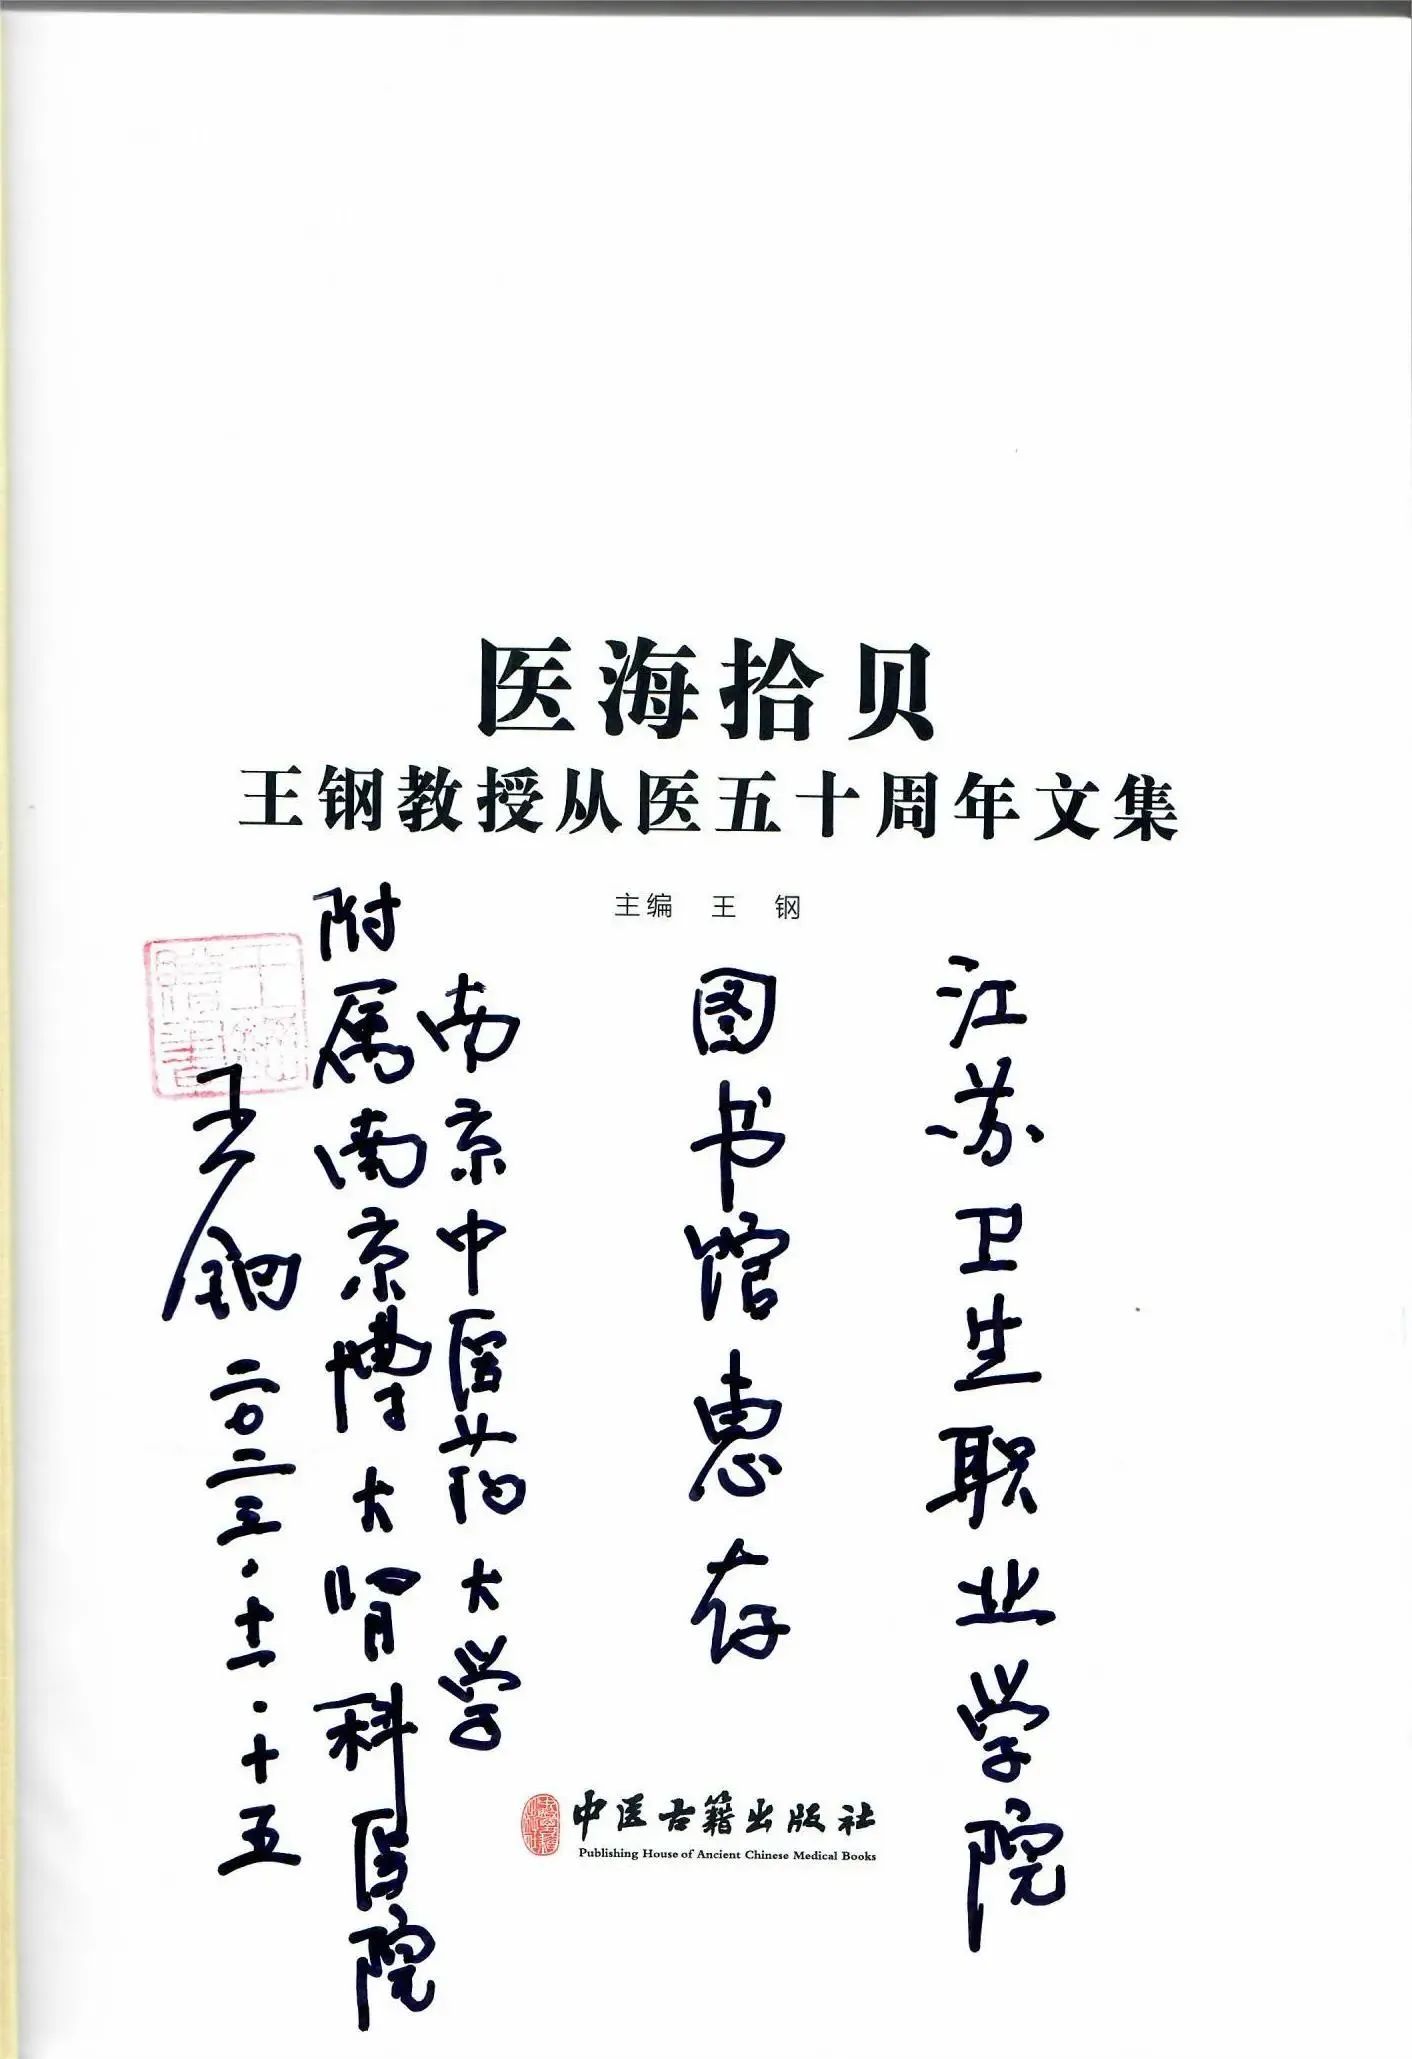 医海拾贝
王钢教授从医五十周年文集
主编 王 钢
江苏卫生职业学院
图书馆惠存
南京中医药大学
附属南京博大肾科医院
王钢
二〇二三·十一·十五
中医古籍出版社
Publishing House of Ancient Chinese Medical Books